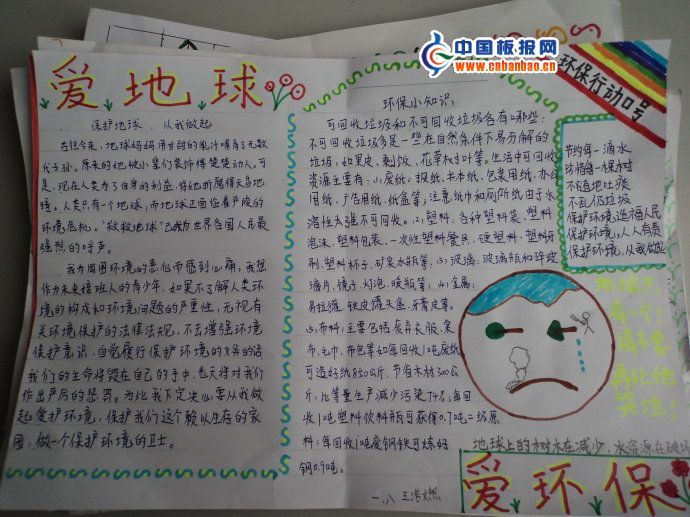 中国板报网
www.cnbanbao.cn
爱地球
保护地球、从我做起
在往今来，地球妈妈用甘甜的乳汁哺育了无数
代子孙。原来的她被小辈们装饰得楚楚动人。可
是，现在人类为了自身的利益，将她折磨得
人类只有一个地球；而地球正面临着严峻的
环境危机。“救救地球”已成为世界各国人民最
强烈的呼声。
我为周围环境的恶化而感到心痛，我想
作为未来接班人的青少年，如果不了解人类环
境的构成和环境问题的严重性，无视有
关环境保护的法律法规，不去增强环境
保护意识，自觉履行保护环境的义务的话
我们的生命将毁在自己的手中，老天将对我们
作出严厉的惩罚。为此我下定决心要从我做
起爱护环境，保护我们这个赖以生存的家
园，做一个保护环境的卫士。
环保小知识
可回收垃圾和不可回收垃圾各有哪些：
不可回收垃圾多是一些在自然条件下易分解的
垃圾，如果皮、剩饭、花草树叶等。生活中可回收
资源主要有：⑴废纸：报纸、书本纸、包装用纸、办公
用纸、广告用纸、纸盒等；注意纸巾和厕所纸由于水
溶性太强不可回收。⑵，塑料，各种塑料袋、塑料
泡沫、塑料包装、一次性塑料餐具、硬塑料、塑料牙
刷、塑料杯子、矿泉水瓶等；⑶玻璃：玻璃瓶和碎玻
璃片、镜子、灯泡、暖瓶等；⑷，金属：
易拉罐、铁皮罐头盒、牙膏皮等。
⑸，布料：主要包括废弃衣服、桌
布、毛巾、布包等如每回收1吨废纸
可造好纸850公斤，节省木材300公
斤，比等量生产减少污染74%；每回
收1吨塑料饮料瓶可获得0.7吨二级原
料；每回收1吨废钢铁可炼好
钢0.9吨。
一、八 王浩燃
环保行动0号
节约每一滴水
珍惜每一棵树
不随地吐痰
不乱仍垃圾
保护环境，造福人民
保护环境，人人有责
保护环境，从我做起
有一个！
请不要
再让他
哭泣！
地球上的树木在减少，水资源在破坏
爱环保